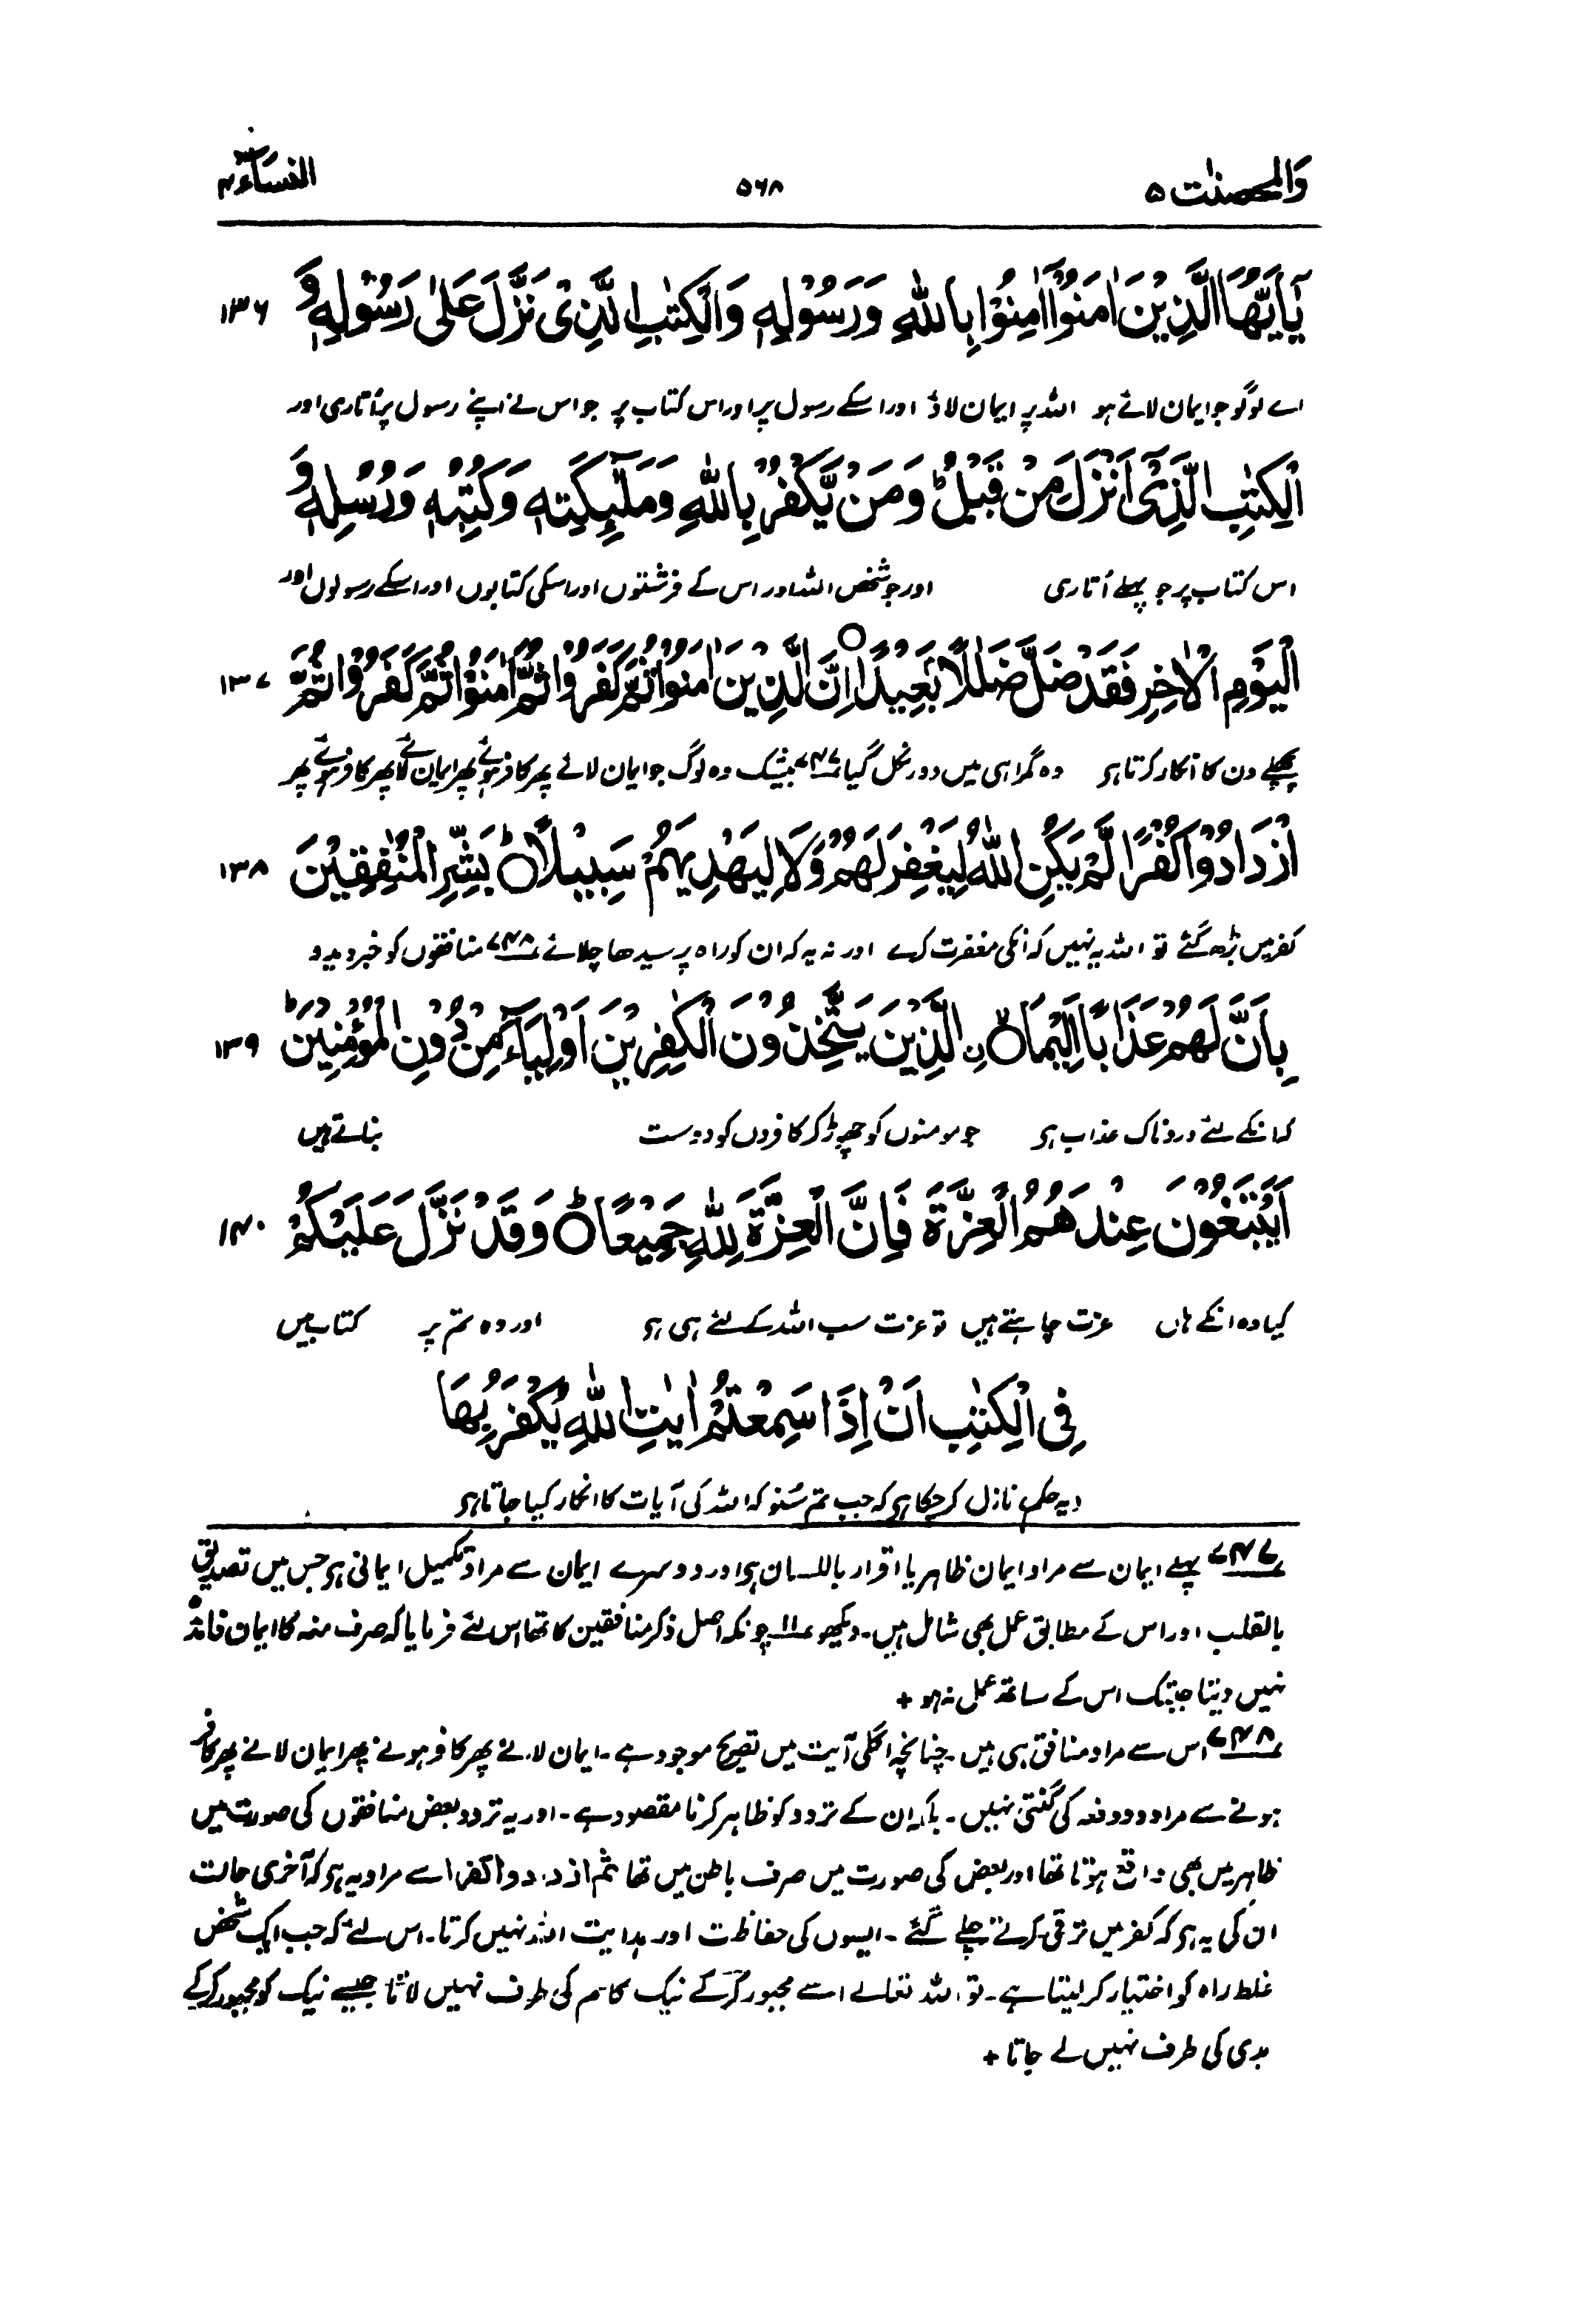 والمحصنٰت ۵ ۵۶۸ النساء ۴
يٰٓاَيُّهَا الَّذِيْنَ اٰمَنُوْٓا اٰمِنُوْا بِاللّٰهِ وَرَسُوْلِهٖ وَالْكِتٰبِ الَّذِىْ نَزَّلَ عَلٰى رَسُوْلِهٖ وَ ۱۳۶
اے لوگو جو ایمان لائے ہو اللہ پر ایمان لاؤ اور اسکے رسول پر اور اس کتاب پر جو اس نے اپنے رسول پر اُتاری اور
الْكِتٰبِ الَّذِىْٓ اَنْزَلَ مِنْ قَبْلُ ؕ وَمَنْ يَّكْفُرْ بِاللّٰهِ وَمَلٰٓئِكَتِهٖ وَكُتُبِهٖ وَرُسُلِهٖ وَ
اس کتاب پر جو پہلے اُتاری اور جو شخص اللہ اور اس کے فرشتوں اور اسکی کتابوں اور اسکے رسولوں اور
الْيَوْمِ الْاٰخِرِ فَقَدْ ضَلَّ ضَلٰلًاۢ بَعِيْدًا ○ اِنَّ الَّذِيْنَ اٰمَنُوْا ثُمَّ كَفَرُوْا ثُمَّ اٰمَنُوْا ثُمَّ كَفَرُوْا ثُمَّ ۱۳۷
پچھلے دن کا انکار کرتا ہو وہ گمراہی میں دور نکل گیا ۷۴۷ بیشک وہ لوگ جو ایمان لائے پھر کافر ہوئے پھر ایمان لائے پھر کافر ہوئے پھر
ازْدَادُوْا كُفْرًا لَّمْ يَكُنِ اللّٰهُ لِيَغْفِرَ لَهُمْ وَلَا لِيَهْدِيَهُمْ سَبِيْلًا ○ؕ بَشِّرِ الْمُنٰفِقِيْنَ ۱۳۸
کفر میں بڑھ گئے تو اللہ یہ نہیں کہ انکی مغفرت کرے اور نہ یہ کہ ان کو راہ پر سیدھا چلائے ۷۴۸ منافقوں کو خبر دیدو
بِاَنَّ لَهُمْ عَذَابًا اَلِيْمَا ○ۙ نِ الَّذِيْنَ يَتَّخِذُوْنَ الْكٰفِرِيْنَ اَوْلِيَآءَ مِنْ دُوْنِ الْمُؤْمِنِيْنَ ؕ ۱۳۹
کہ انکے لئے دردناک عذاب ہو جو مومنوں کو چھوڑ کر کافروں کو دوست بناتے ہیں
اَيَبْتَغُوْنَ عِنْدَهُمُ الْعِزَّةَ فَاِنَّ الْعِزَّةَ لِلّٰهِ جَمِيْعًا ○ؕ وَقَدْ نَزَّلَ عَلَيْكُمْ ۱۴۰
کیا وہ انکے ہاں عزت چاہتے ہیں تو عزت سب اللہ کے لئے ہی ہو اور وہ تم پر کتاب میں
فِى الْكِتٰبِ اَنْ اِذَا سَمِعْتُمْ اٰيٰتِ اللّٰهِ يُكْفَرُ بِهَا
(یہ حکم) نازل کر چکا ہو کہ جب تم سُنو کہ اللہ کی آیات کا انکار کیا جاتا ہو
۷۴۷ پہلے ایمان سے مراد ایمان ظاہر یا اقرار باللسان ہو اور دوسرے ایمان سے مراد تکمیل ایمانی ہو جس میں تصدیق
بالقلب اور اس کے مطابق عمل بھی شامل ہیں۔ دیکھو ۱۱ چونکہ اصل ذکر منافقین کا تھا اس لئے فرمایا کہ صرف منہ کا ایمان فائدہ
نہیں دیتا جبتک اس کے ساتھ عمل نہ ہو +
۷۴۸ اس سے مراد منافق ہی ہیں۔ چنانچہ اگلی آیت میں تصریح موجود ہے۔ ایمان لانے پھر کافر ہونے پھر ایمان لانے پھر کافر
ہونے سے مراد دو دفعہ کی گنتی نہیں۔ بلکہ ان کے تردد کو ظاہر کرنا مقصود ہے۔ اور یہ تردد بعض منافقوں کی صورت میں
ظاہر میں بھی واقع ہوتا تھا اور بعض کی صورت میں صرف باطن میں تھا ثم ازدادوا کفرا سے مراد یہ ہو کہ آخری حالت
ان کی یہ ہو کہ کفر میں ترقی کرتے چلے گئے۔ ایسوں کی حفاظت اور ہدایت اللہ نہیں کرتا۔ اس لئے کہ جب ایک شخص
غلط راہ کو اختیار کر لیتا ہے۔ تو اللہ تعالے اسے مجبور کرکے نیک کام کی طرف نہیں لاتا جیسے نیک کو مجبور کرکے
بدی کی طرف نہیں لے جاتا +